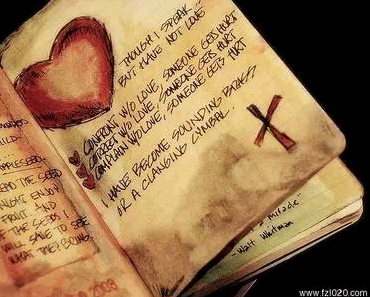 THOUGH I SPEAK
BUT HAVE NOT LOVE
CONFRONT W/O LOVE, SOMEONE GETS HURT
CORRECT W/O LOVE, SOMEONE GETS HURT
COMPLAIN W/O LOVE, SOMEONE GETS HURT
I HAVE BECOME SOUNDING BRASS
OR A CLANGING CYMBAL.
APPLESEED
THE SEED
MIGHT ENJOY
FRUIT. AND
THE SEEDS I
WILL SAVE TO SEE
WHAT THEY BRING.
2008
a miracle"
- Walt Whitman
www.fzl020.com